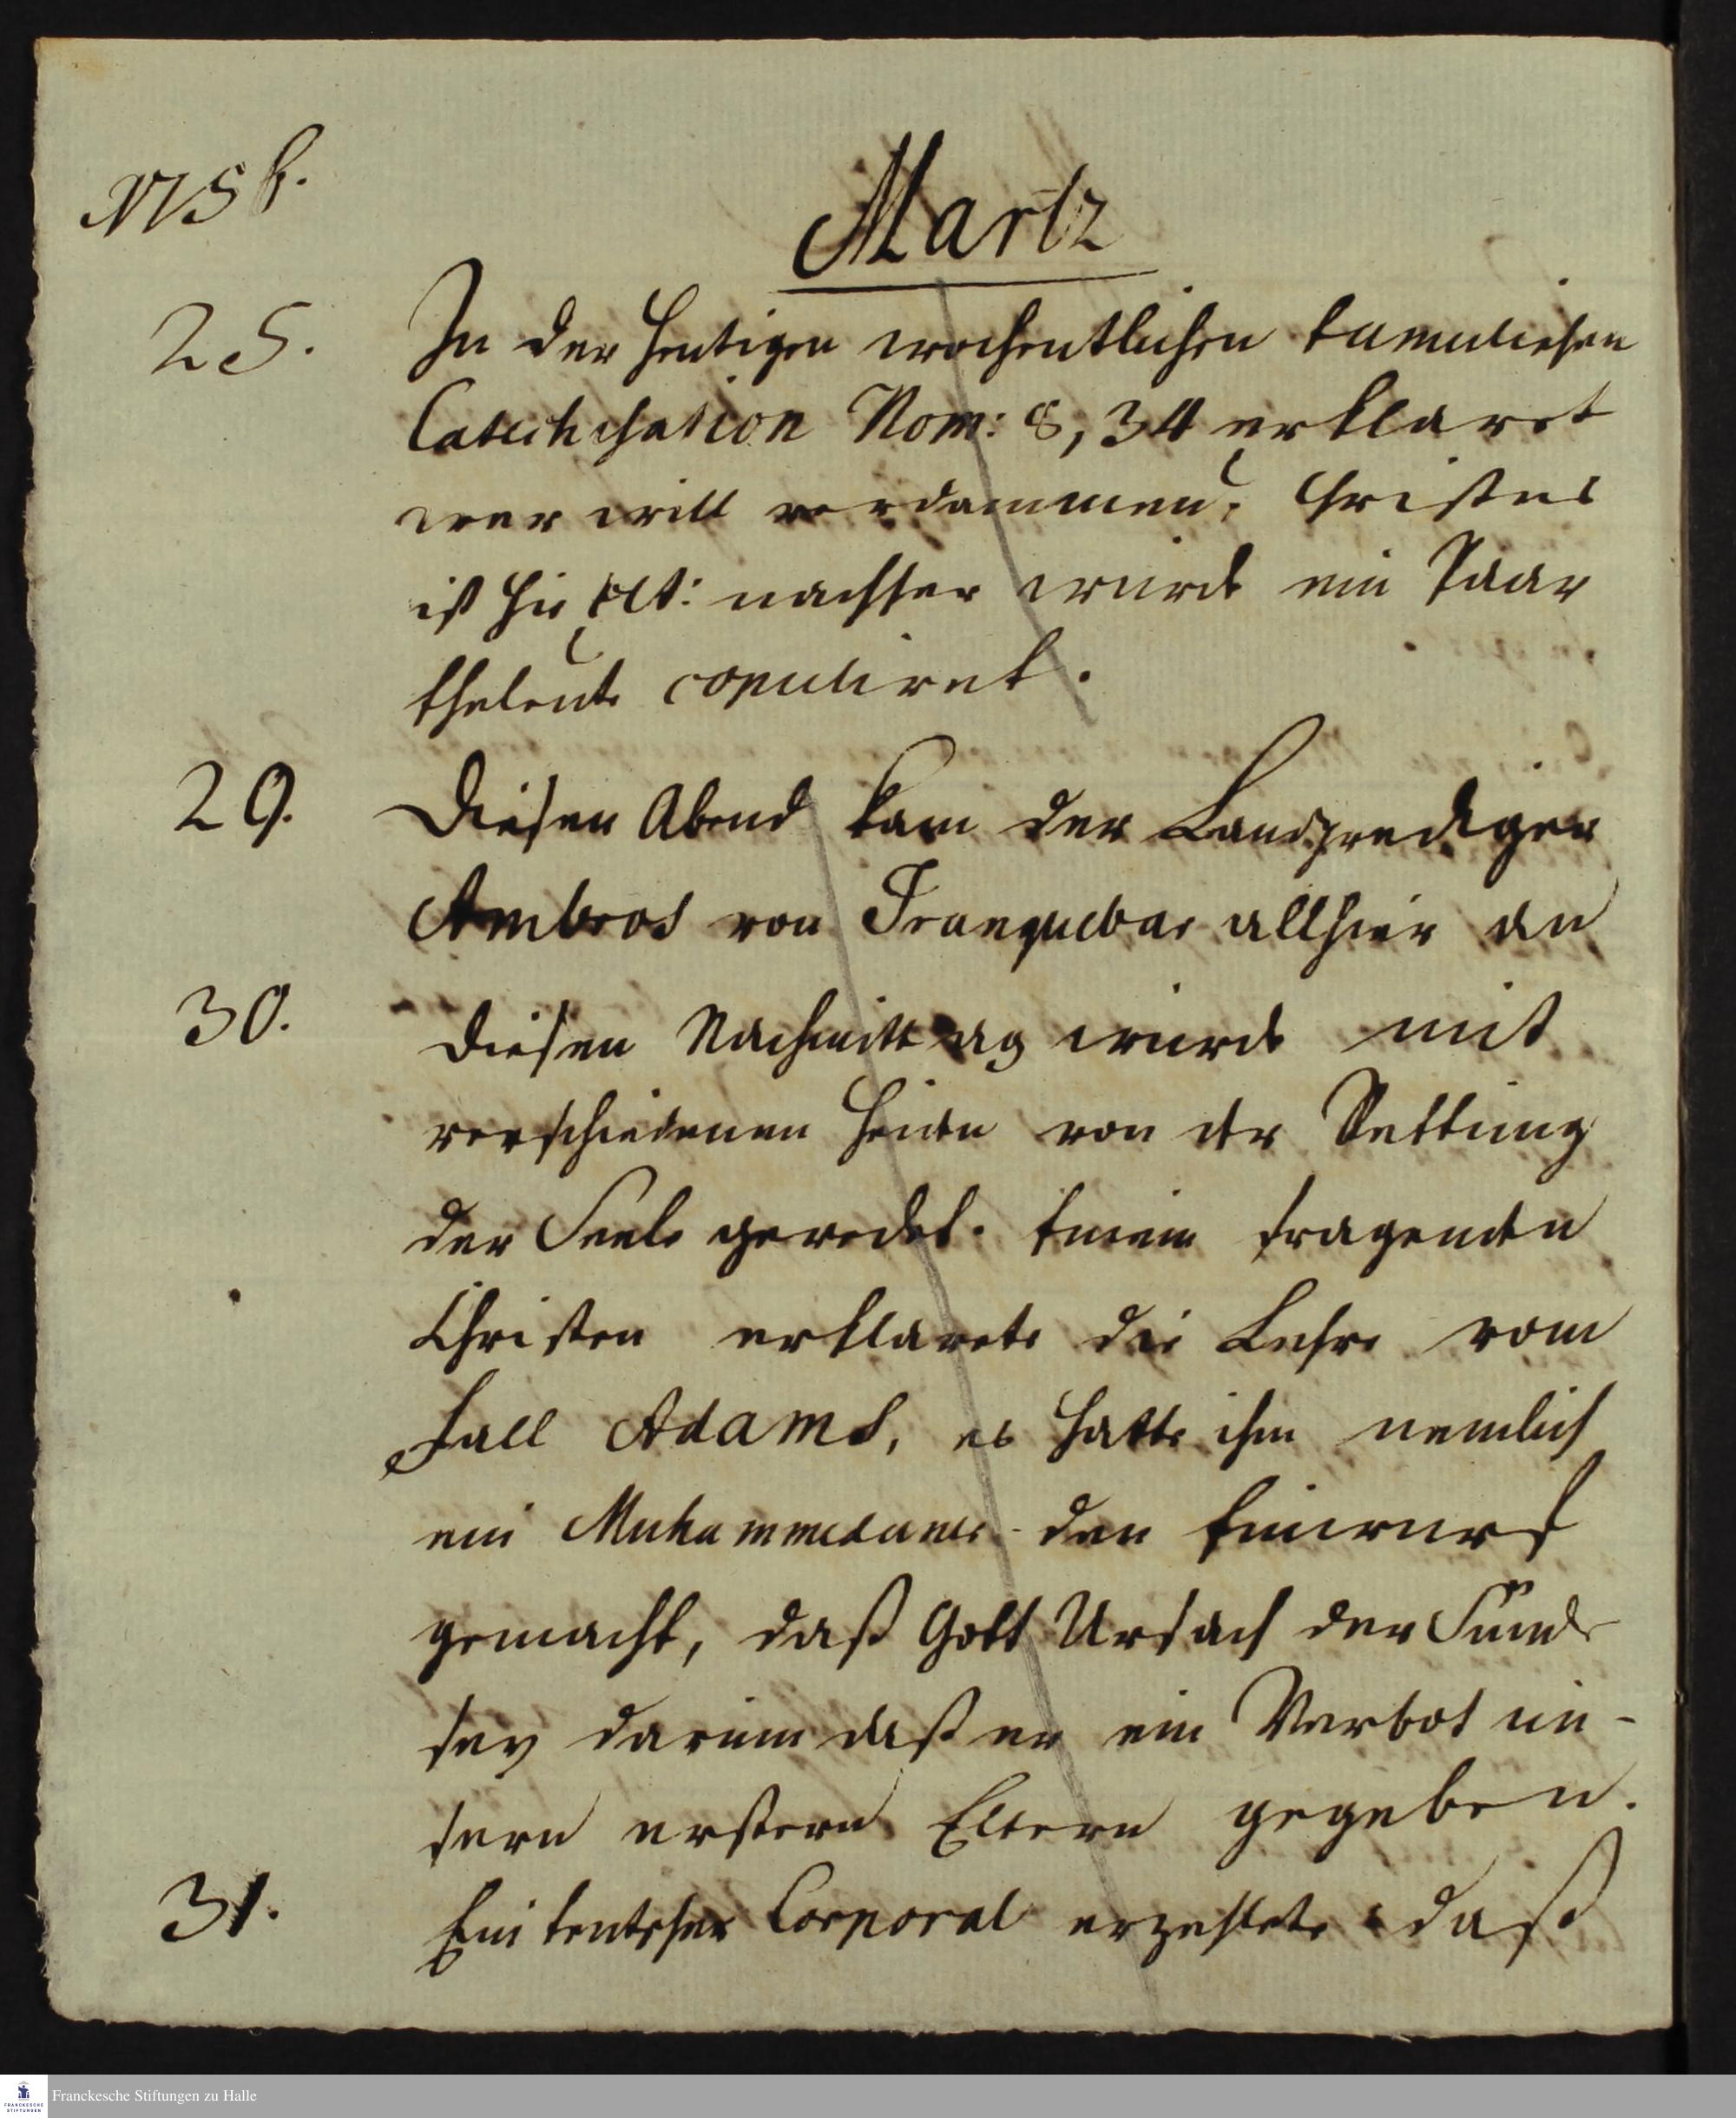 Martz
25. In der heutigen wochentlichen tamulischen
Catechisation Rom: 8, 34 erklaret
wer will verdammen, Christus
ist hie etc: nachher wurde ein Paar
Eheleute copuliret.
29. Diesen Abend kam der Landprediger
Ambros von Tranquebar allhier an
30. Diesen Nachmittag wurde mit
verschiedenen Heiden von der Rettung
der Seele geredet. Einem fragenden
Christen erklarete die Lehre vom
Fall Adams, es hatte ihm nemlich
ein Muhammedaner den Einwurf
gemacht, daß Gott Ursach der Sünde
sey darum daß er ein Verbot un-
sern erstern Eltern gegeben.
31. Ein teutscher Corporal erzehlete daß
Franckesche Stiftungen zu Halle
FRANCKESCHE
STIFTUNGEN